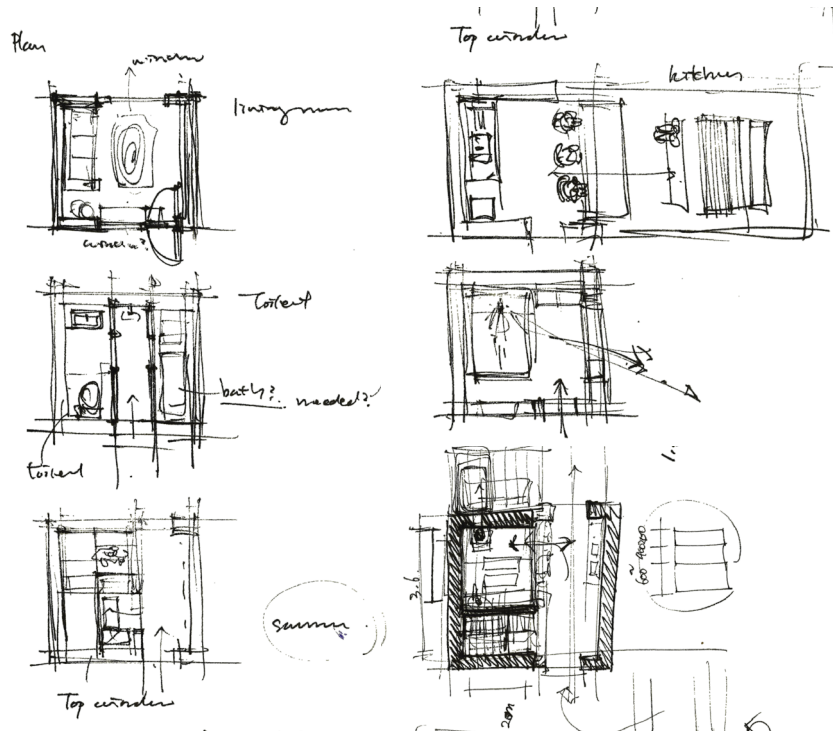 Plan
window
living room
window?
Toilet
bath?
needed?
toilet
Top window
sauna
Top window
kitchen
3.6
600